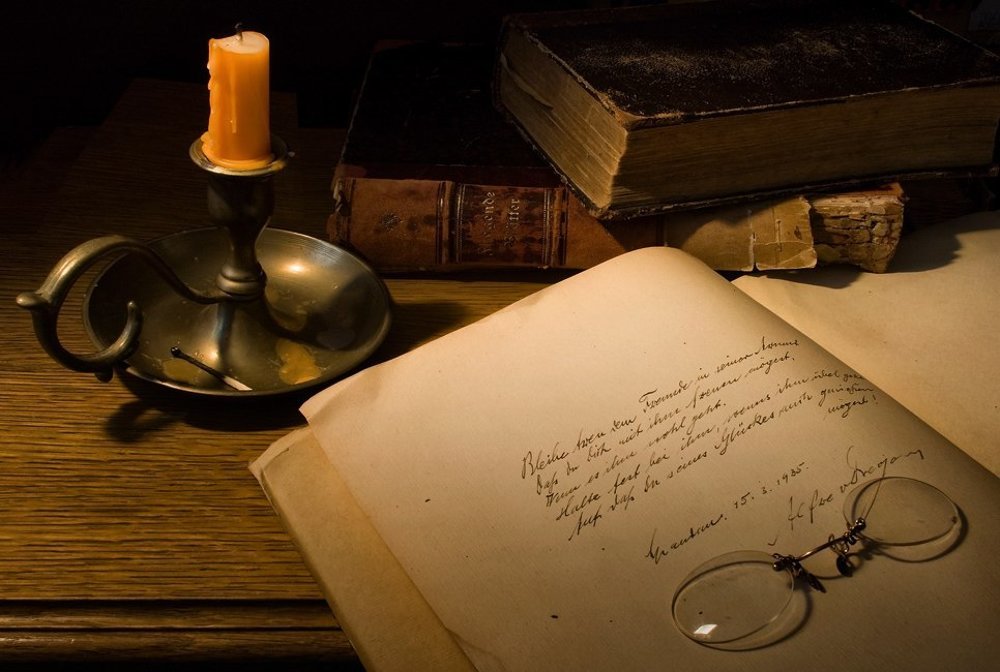 Bleibe treu dem Freunde in seiner Armut,
Daß du dich mit ihm freuen mögest,
Wenn es ihm wohl geht.
Halte fest bei ihm, wenns ihm übel geht
Auf daß du seines Glückes auch genießen
mögest!
Spandau. 15.3.1935.